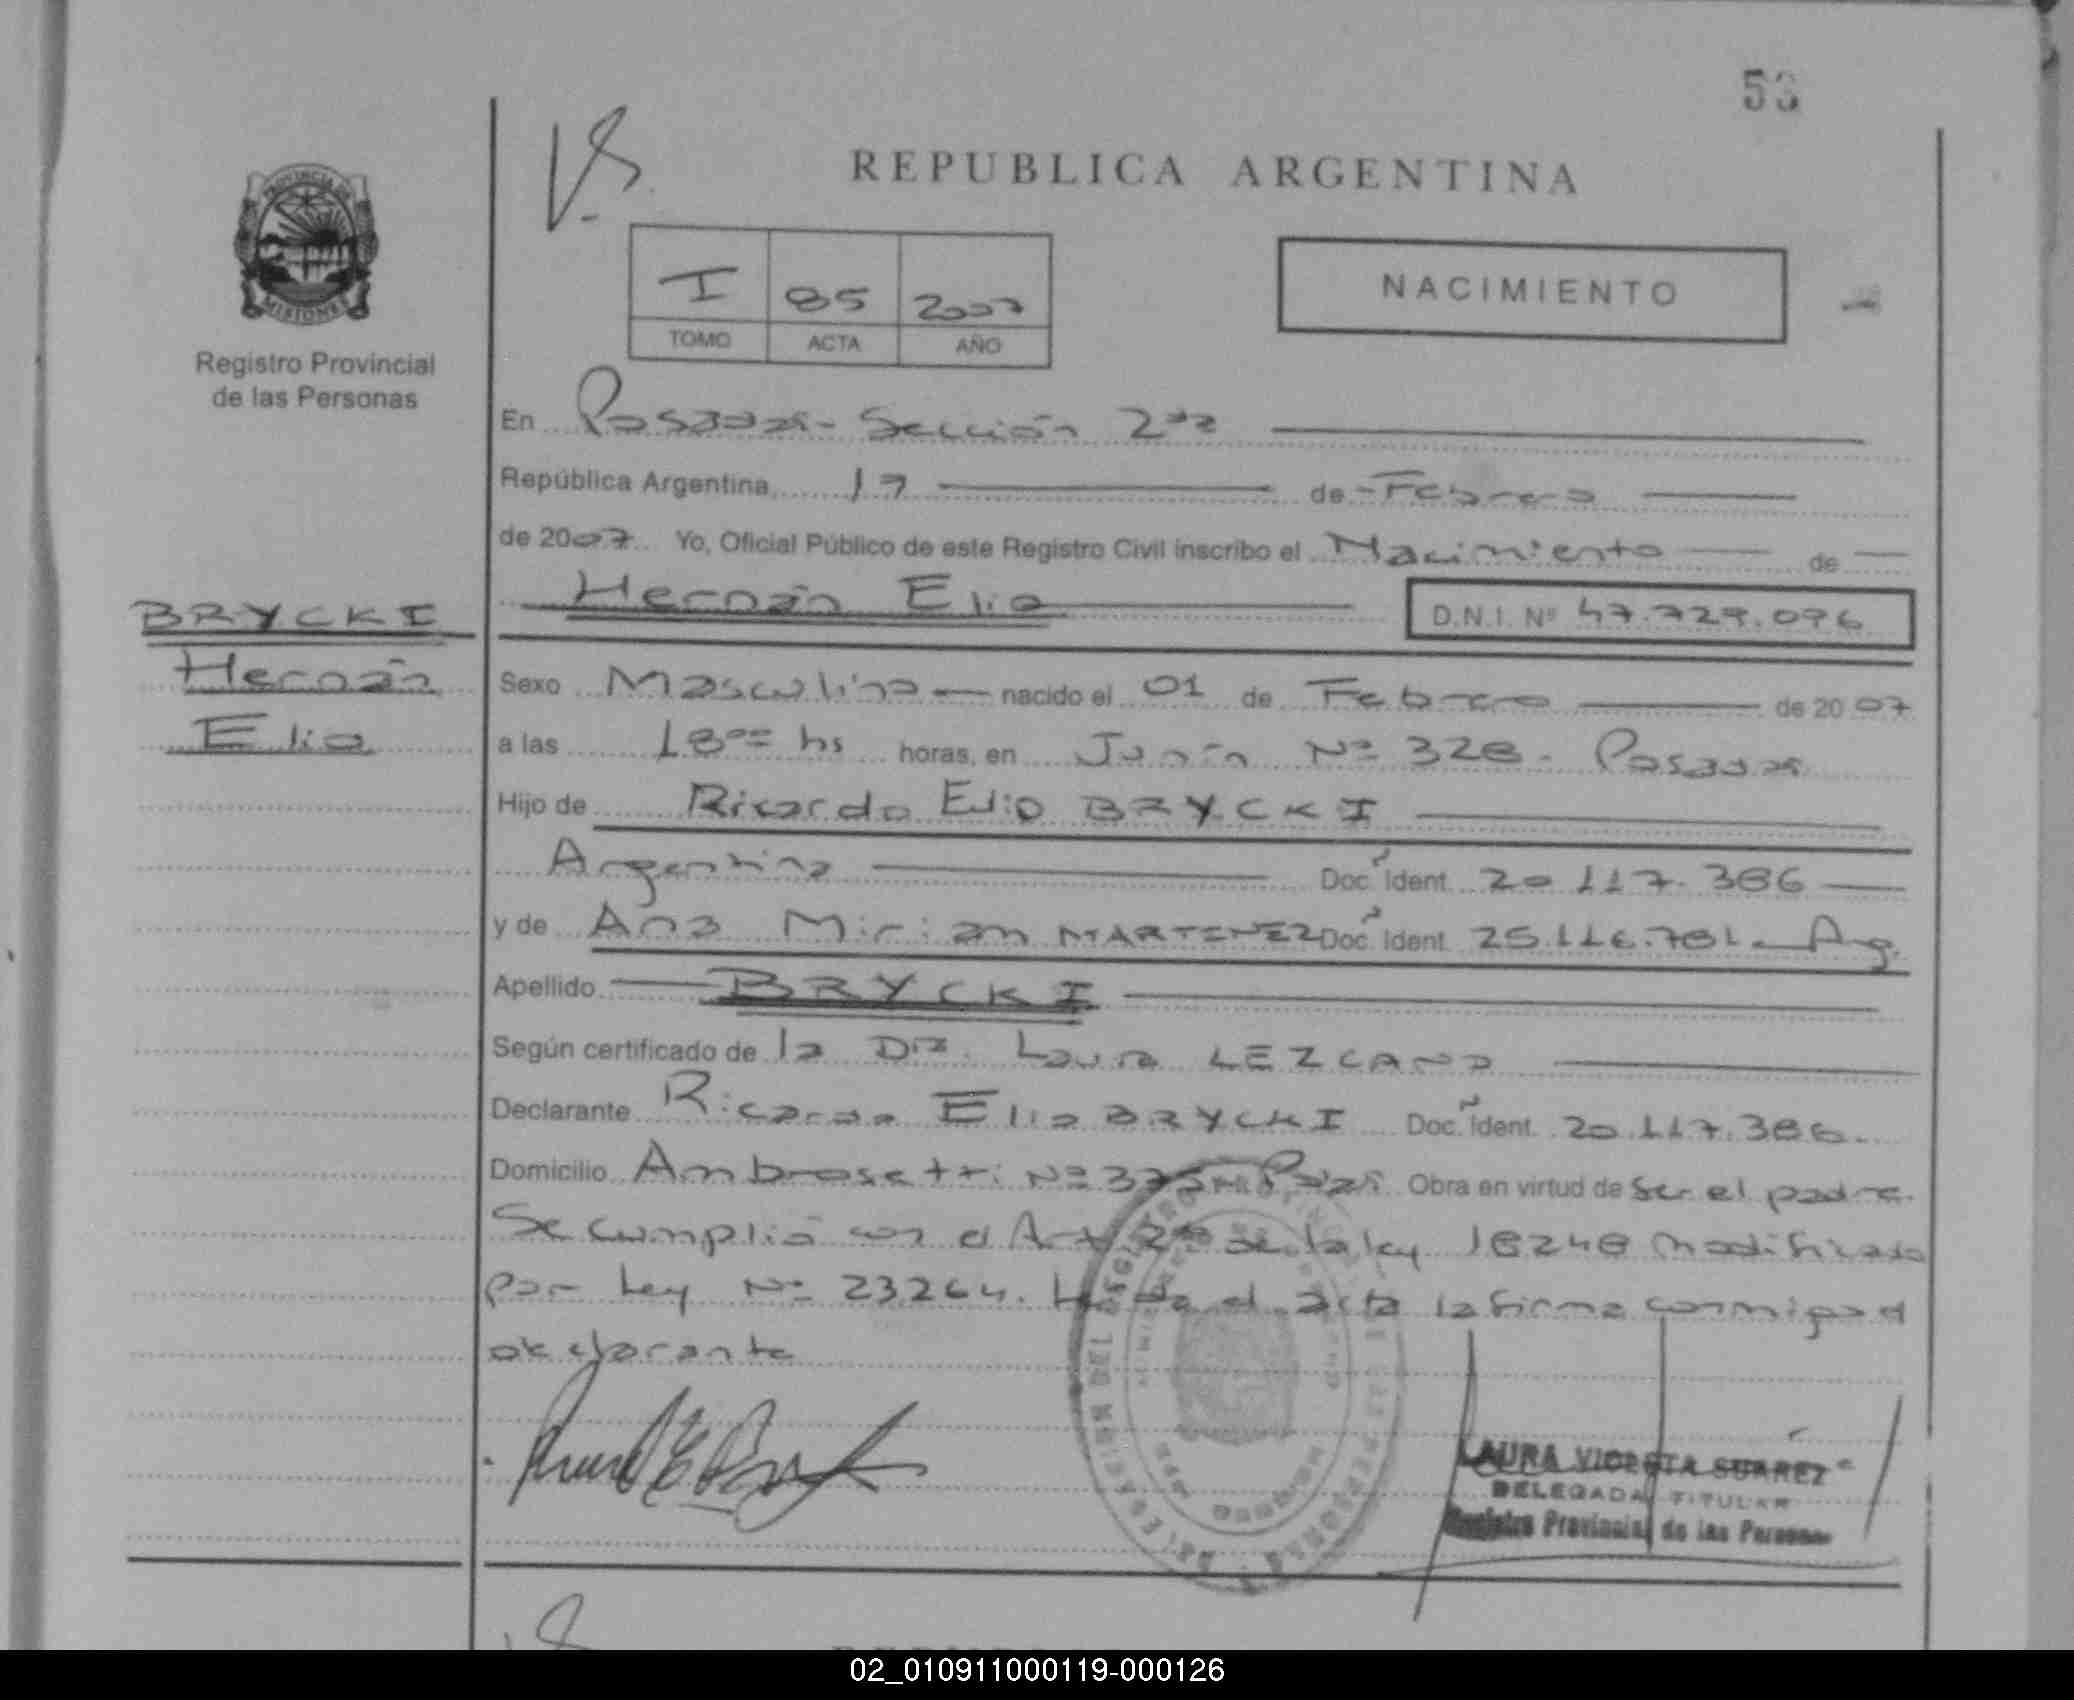 53
REPUBLICA ARGENTINA
PROVINCIA DE
MISIONES
Registro Provincial
de las Personas
I 85 2007
TOMO ACTA AÑO
NACIMIENTO
En Posadas - Sección 2da
República Argentina, 17 de Febrero
de 2007. Yo, Oficial Público de este Registro Civil inscribo el Nacimiento de
Hernán Elio D.N.I. Nº 47.729.096
BRYCKI
Hernán
Elio
Sexo Masculino nacido el 01 de Febrero de 2007
a las 18ºº hs horas, en Junín Nº 328 - Posadas
Hijo de Ricardo Elio BRYCKI
Argentino Doc. Ident. 20.117.386
y de Ana Mirian MARTINEZ Doc. Ident. 25.116.781 - Arg.
Apellido BRYCKI
Según certificado de la Dra. Laura LEZCANO
Declarante Ricardo Elio BRYCKI Doc. Ident. 20.117.386.
Domicilio Ambrosetti Nº Obra en virtud de ser el padre.
Se cumplió con el Art 2do de la ley 18248 modificado
por Ley Nº 23264. Leída el acta la firma conmigo el
declarante
LAURA VIOLETA SUAREZ
DELEGADA TITULAR
Registro Provincial de las Personas
02_010911000119-000126